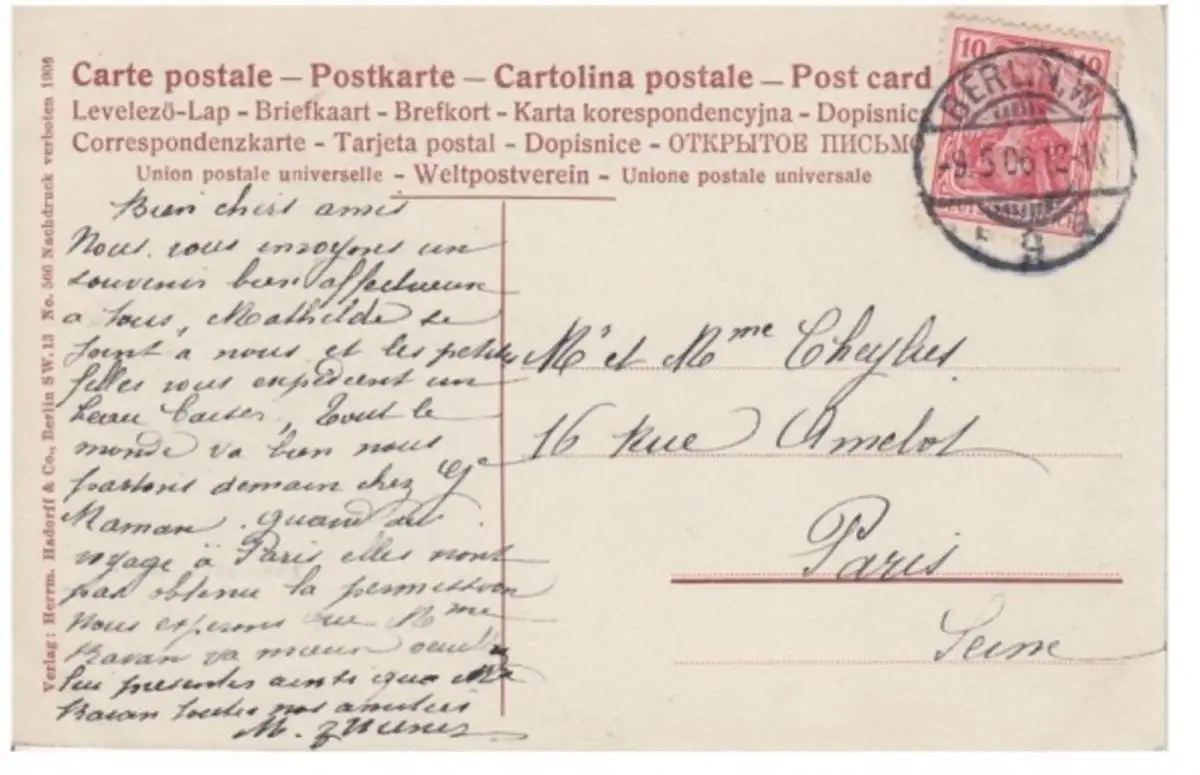 Carte postale – Postkarte – Cartolina postale – Post card
Levelező-Lap - Briefkaart - Brefkort - Karta korespondencyjna - Dopisnica
Correspondenzkarte - Tarjeta postal - Dopisnice - ОТКРЫТОЕ ПИСЬМО
Union postale universelle - Weltpostverein - Unione postale universale
10 10
BERLIN.W.
-9.5.06.12-1
9
Bien chers amis
Nous vous envoyons un
souvenir bien affectueux
a tous, Mathilde se
joint a nous et les petites
filles vous expedient un
beau baiser, Tout le
monde va bien nous
partons demain chez
Maman. quand au
voyage à Paris elles nont
pas obtenu la permission
Nous esperons que Mme
Bavan va mieux
lui presenter ainsi qua Mr
Bavan toutes nos amitiés
M.
Mr et Mme Cheylus
16 Rue Amelot
Paris
Seine
Verlag: Herrm. Hadorff & Co., Berlin SW. 13 No. 566 Nachdruck verboten 1906